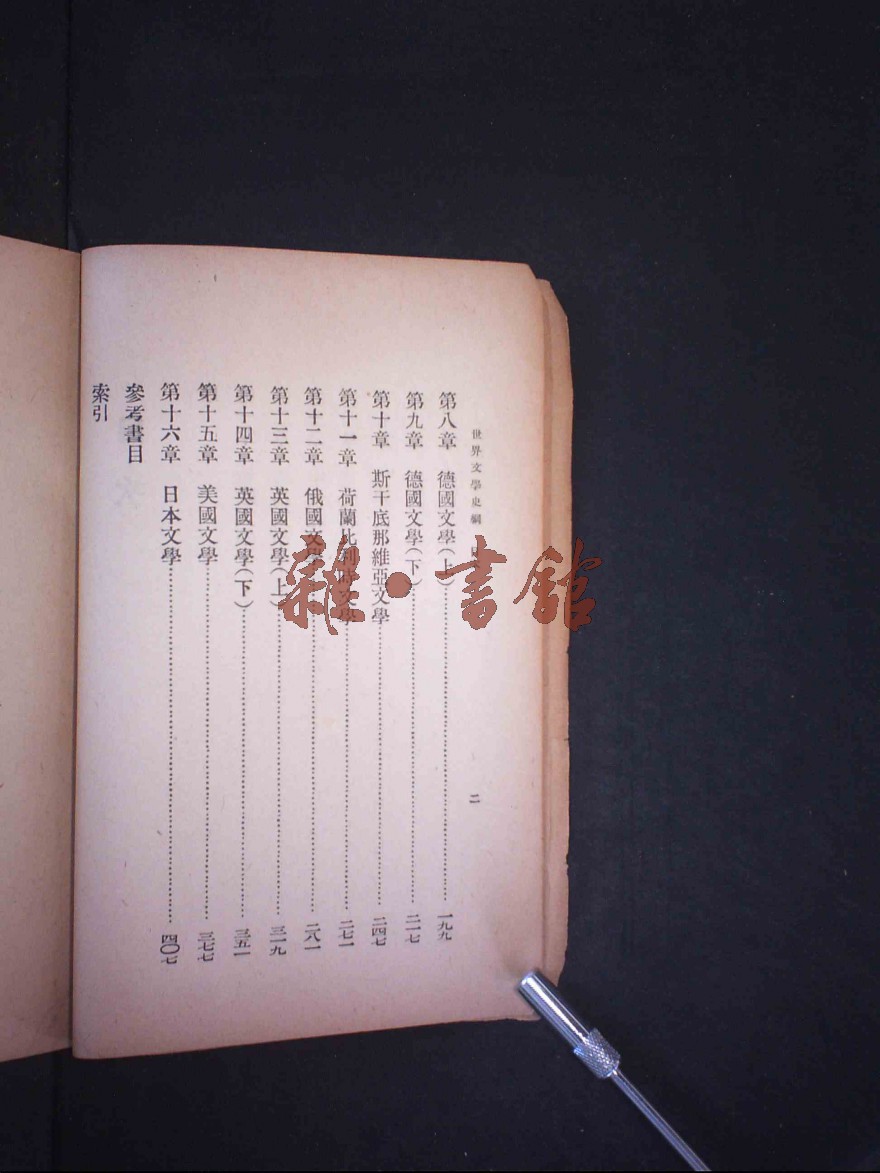 世界文學史綱
二
第八章　德國文學（上）……一九九
第九章　德國文學（下）……二一七
第十章　斯干底那維亞文學……二四七
第十一章　荷蘭比利時文學……二七一
第十二章　俄國文學……二八一
第十三章　英國文學（上）……三一九
第十四章　英國文學（下）……三五一
第十五章　美國文學……三七七
第十六章　日本文學……四〇七
參考書目
索引
雜·書館